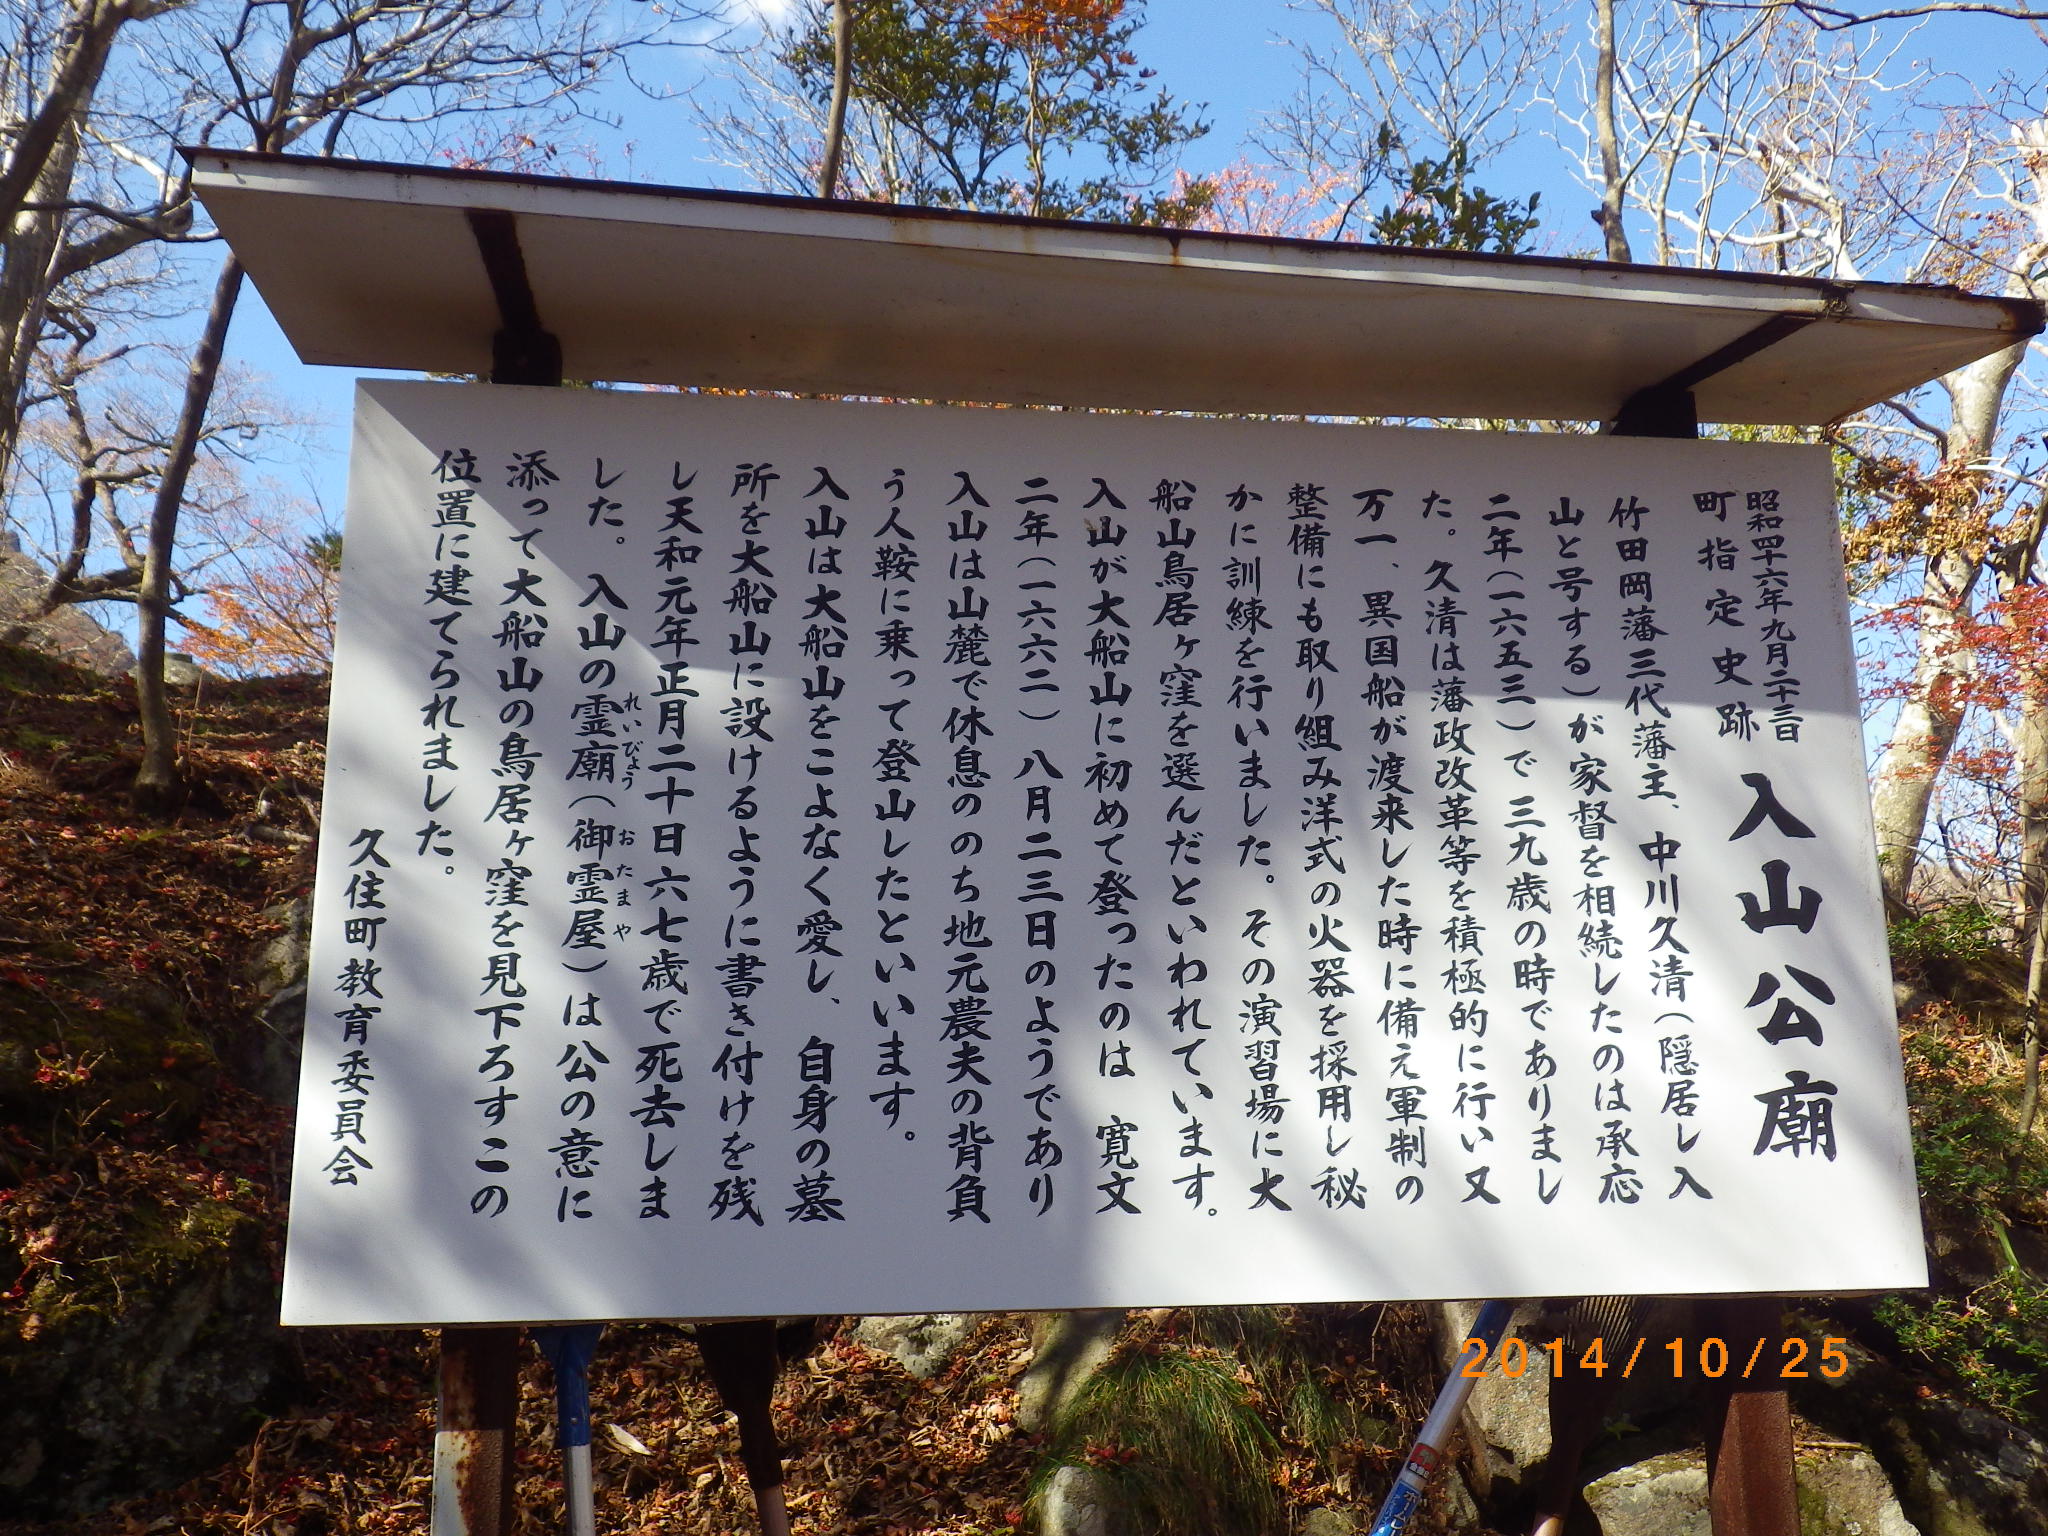 昭和四十六年九月二十三日
町指定史跡
入山公廟
竹田岡藩三代藩主、中川久清（隠居し入
山と号する）が家督を相続したのは承応
二年（一六五三）で三九歳の時でありまし
た。久清は藩政改革等を積極的に行い又
万一、異国船が渡来した時に備え軍制の
整備にも取り組み洋式の火器を採用し秘
かに訓練を行いました。その演習場に大
船山鳥居ヶ窪を選んだといわれています。
入山が大船山に初めて登ったのは　寛文
二年（一六六二）八月二三日のようであり
入山は山麓で休息ののち地元農夫の背負
う人鞍に乗って登山したといいます。
入山は大船山をこよなく愛し、自身の墓
所を大船山に設けるように書き付けを残
し天和元年正月二十日六七歳で死去しま
した。入山の霊廟（御霊屋）は公の意に
れいびょう　おたまや
添って大船山の鳥居ヶ窪を見下ろすこの
位置に建てられました。
久住町教育委員会
2014/10/25